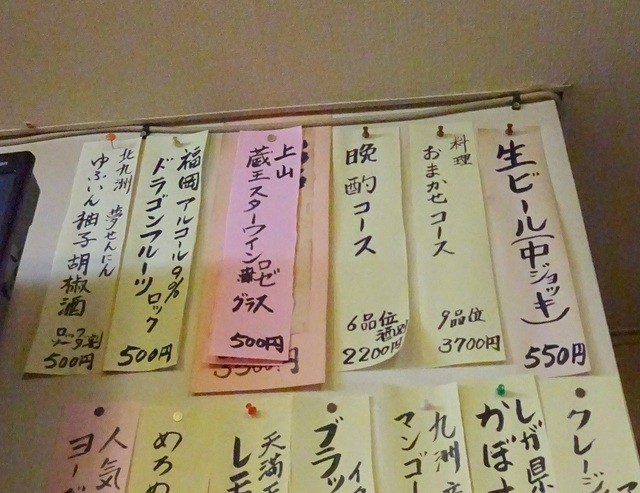 生ビール(中ジョッキ)
550円
料理
おまかせコース
9品位
3700円
晩酌コース
6品位
酒別
2200円
上山
蔵王スターワイン
ロゼ
グラス
500円
福岡 アルコール9%
ドラゴンフルーツ
ロック
500円
北九州 夢せんにん
ゆふいん柚子胡椒酒
ロック
ソーダ割
500円
クレージ
しが県
かぼす
九州産
マンゴー
ブラッ
天満天
レモ
めろめ
人気
ヨーグ